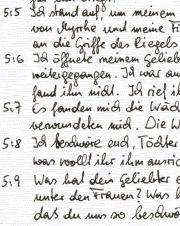 5:5 Ich stand auf, um meinem
von Myrrhe und meine Fi
an die Griffe des Riegels
5:6 Ich öffnete meinem Gelieb
weitergegangen. Ich war au
fand ihn nicht. Ich rief ih
5:7 Es fanden mich die Wäch
verwundeten mich. Die W
5:8 Ich beschwöre euch, Töchter
was wollt ihr ihm ausric
5:9 Was hat dein Geliebter
unter den Frauen? Was h
daß du uns so beschwö